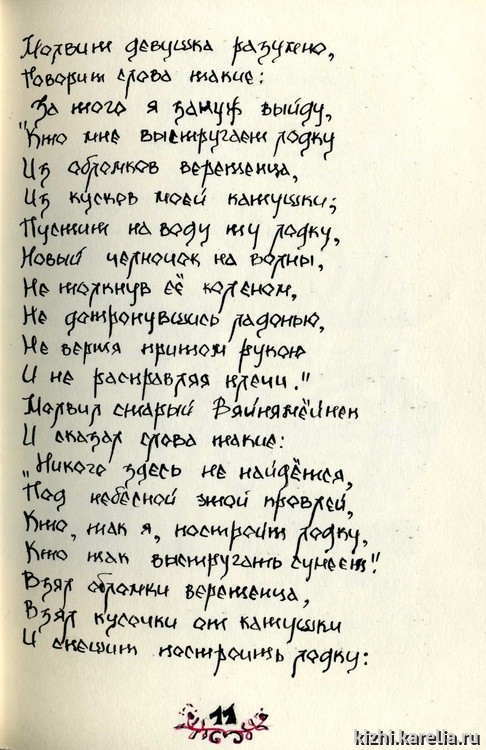 Молвит девушка разумно,
Говорит слова такие:
"За того я замуж выйду,
Кто мне выстругает лодку
Из обломков веретенца,
Из кусков моей катушки;
Пустит на воду ту лодку,
Новый челночок на волны,
Не толкнув её коленом,
Не дотронувшись ладонью,
Не вертя притом рукою
И не расправляя плечи."
Молвил старый Вяйнямёйнен
И сказал слова такие:
„Никого здесь не найдётся,
Под небесной этой кровлей,
Кто, так я, построит лодку,
Кто так выстругать сумеет!"
Взял обломки веретенца,
Взял кусочки от катушки
И спешит построить лодку:
11
kizhi.karelia.ru